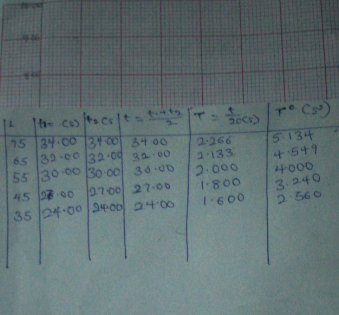 L t1 (s) t2 (s t = t1+t2/2 T = t/20(s) T² (s²)
75 34.00 34.00 34.00 2.266 5.134
65 32.00 32.00 32.00 2.133 4.549
55 30.00 30.00 30.00 2.000 4.000
45 27.00 27.00 27.00 1.800 3.240
35 24.00 24.00 24.00 1.600 2.560